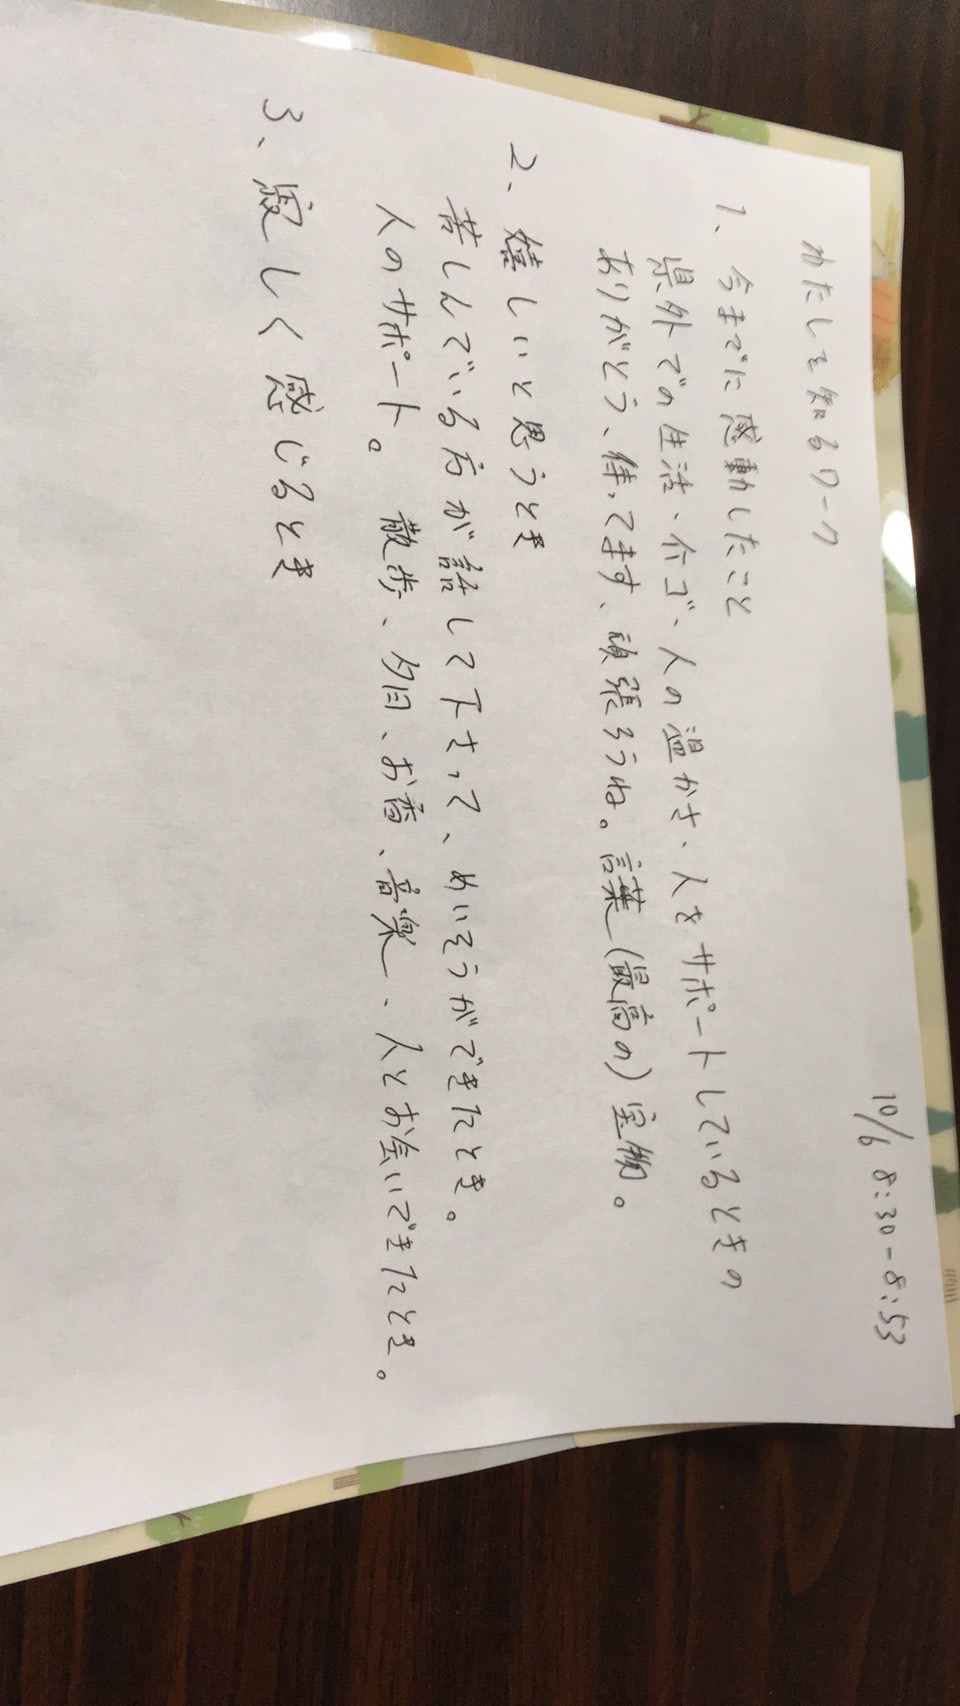 10/6 8:30-8:53
わたしを知るワーク
1、今までに感動したこと
県外での生活、介ゴ、人の温かさ、人をサポートしているときの
ありがとう、待ってます、頑張ろうね。言葉(最高の)宝物。
2、嬉しいと思うとき
苦しんでいる方が話して下さって、めいそうができたとき。
人のサポート。散歩、夕日、お香、音楽、人とお会いできたとき。
3、寂しく感じるとき